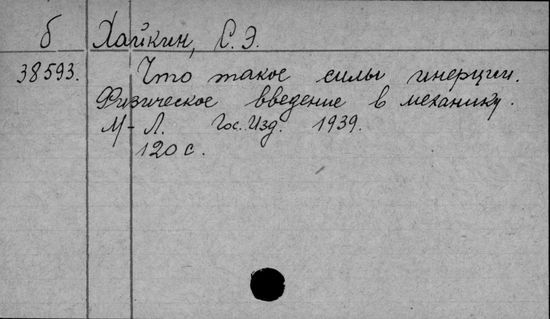 б Хайкин, С. Э.
38593. Что такое силы инерции.
Физическое введение в механику.
М-Л. Гос. Изд. 1939.
120 с.